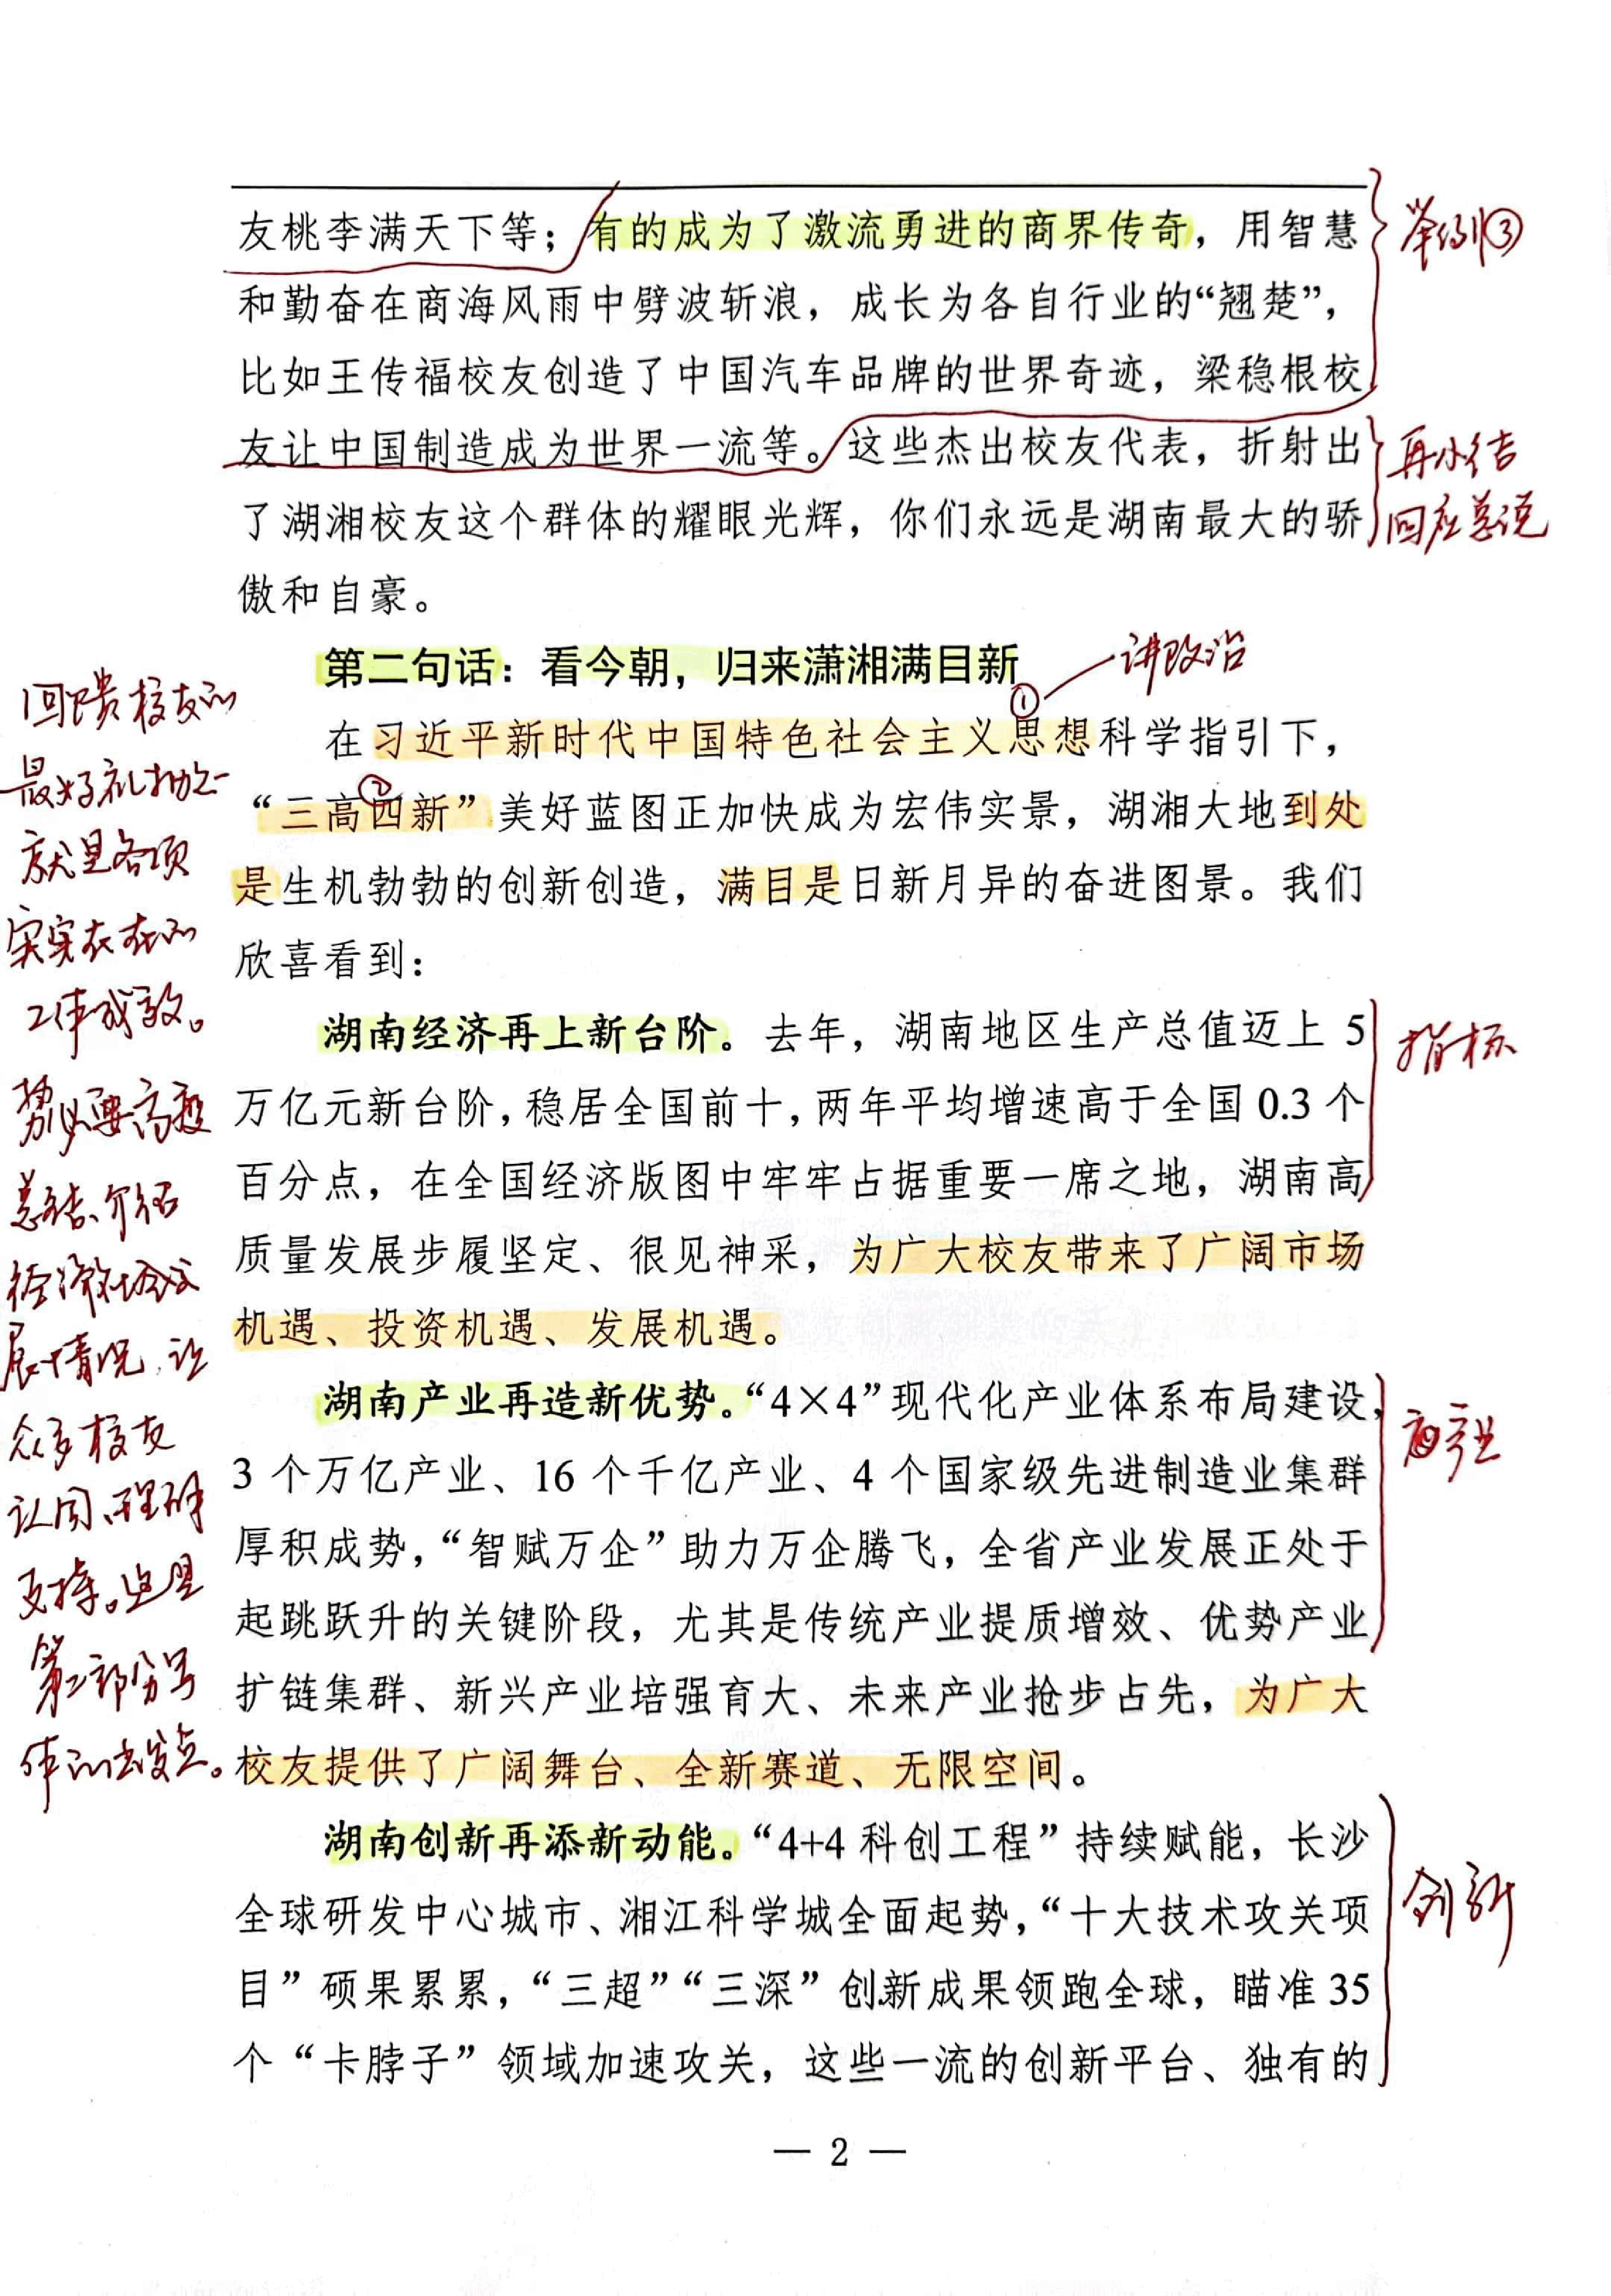 友桃李满天下等；有的成为了激流勇进的商界传奇，用智慧
和勤奋在商海风雨中劈波斩浪，成长为各自行业的“翘楚”，
比如王传福校友创造了中国汽车品牌的世界奇迹，梁稳根校
友让中国制造成为世界一流等。这些杰出校友代表，折射出
了湖湘校友这个群体的耀眼光辉，你们永远是湖南最大的骄
傲和自豪。
举例③
再小结
回应总说
第二句话：看今朝，归来潇湘满目新
①
讲政治
在习近平新时代中国特色社会主义思想科学指引下，
②
“三高四新”美好蓝图正加快成为宏伟实景，湖湘大地到处
是生机勃勃的创新创造，满目是日新月异的奋进图景。我们
欣喜看到：
湖南经济再上新台阶。去年，湖南地区生产总值迈上 5
万亿元新台阶，稳居全国前十，两年平均增速高于全国 0.3 个
百分点，在全国经济版图中牢牢占据重要一席之地，湖南高
质量发展步履坚定、很见神采，为广大校友带来了广阔市场
机遇、投资机遇、发展机遇。
指标
湖南产业再造新优势。“4×4”现代化产业体系布局建设，
3 个万亿产业、16 个千亿产业、4 个国家级先进制造业集群
厚积成势，“智赋万企”助力万企腾飞，全省产业发展正处于
起跳跃升的关键阶段，尤其是传统产业提质增效、优势产业
扩链集群、新兴产业培强育大、未来产业抢步占先，为广大
校友提供了广阔舞台、全新赛道、无限空间。
产业
湖南创新再添新动能。“4+4 科创工程”持续赋能，长沙
全球研发中心城市、湘江科学城全面起势，“十大技术攻关项
目”硕果累累，“三超”“三深”创新成果领跑全球，瞄准 35
个“卡脖子”领域加速攻关，这些一流的创新平台、独有的
创新
回馈校友的
最好礼物之一
就是各项
实实在在的
工作成效。
势必要高度
总结、介绍
经济社会发
展情况，让
众多校友
认同、理解
支持。这是
第二部分写
作的出发点。
— 2 —